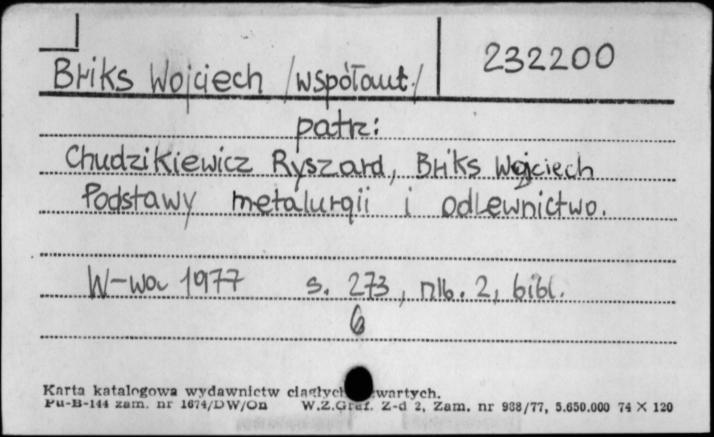 232200
Briks Wojciech /współaut./
patrz:
Chudzikiewicz Ryszard, Briks Wojciech
Podstawy metalurgii i odlewnictwo.
W-wa 1977 s. 273, nlb. 2, bibl.
6
Karta katalogowa wydawnictw ciągłych wartych.
Pu-B-144 zam. nr 1674/DW/On W.Z.Graf. Z-d 2, Zam. nr 938/77, 5.650.000 74 X 120